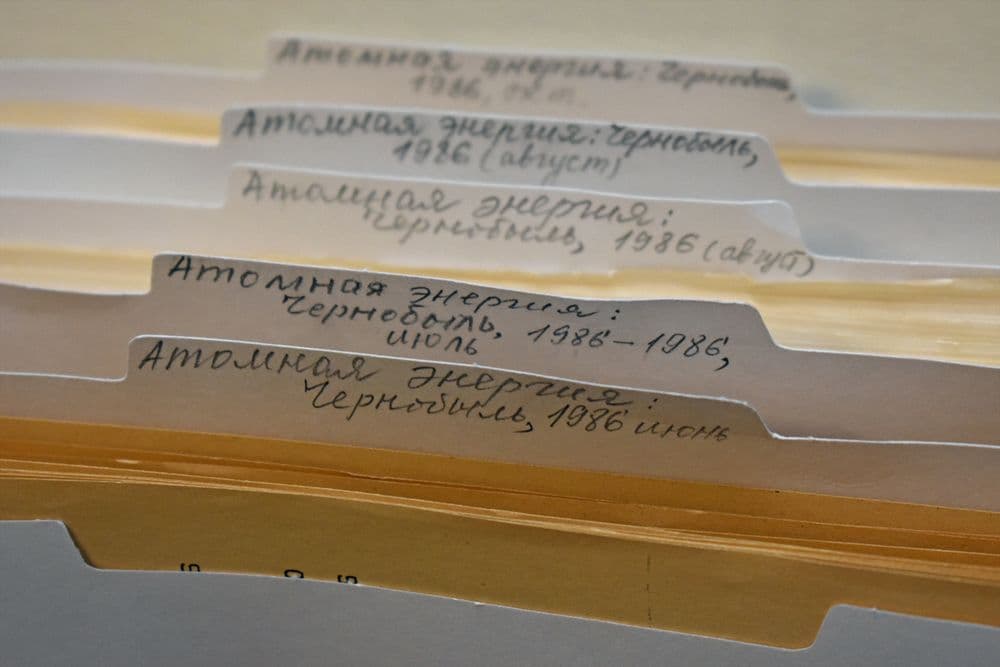 Атомная энергия: Чернобыль,
1986, окт.
Атомная энергия: Чернобыль,
1986 (август)
Атомная энергия:
Чернобыль, 1986 (август)
Атомная энергия:
Чернобыль, 1986–1986,
июль
Атомная энергия:
Чернобыль, 1986 июнь